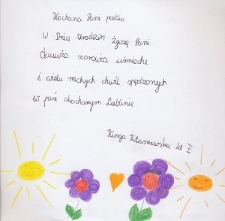 Kochana Pani
w Dniu Urodzin życzę Pani
dużo zdrowia uśmiechu
i wielu miłych chwil spędzonych
w pani kochanym Lublinie
Kinga kl I